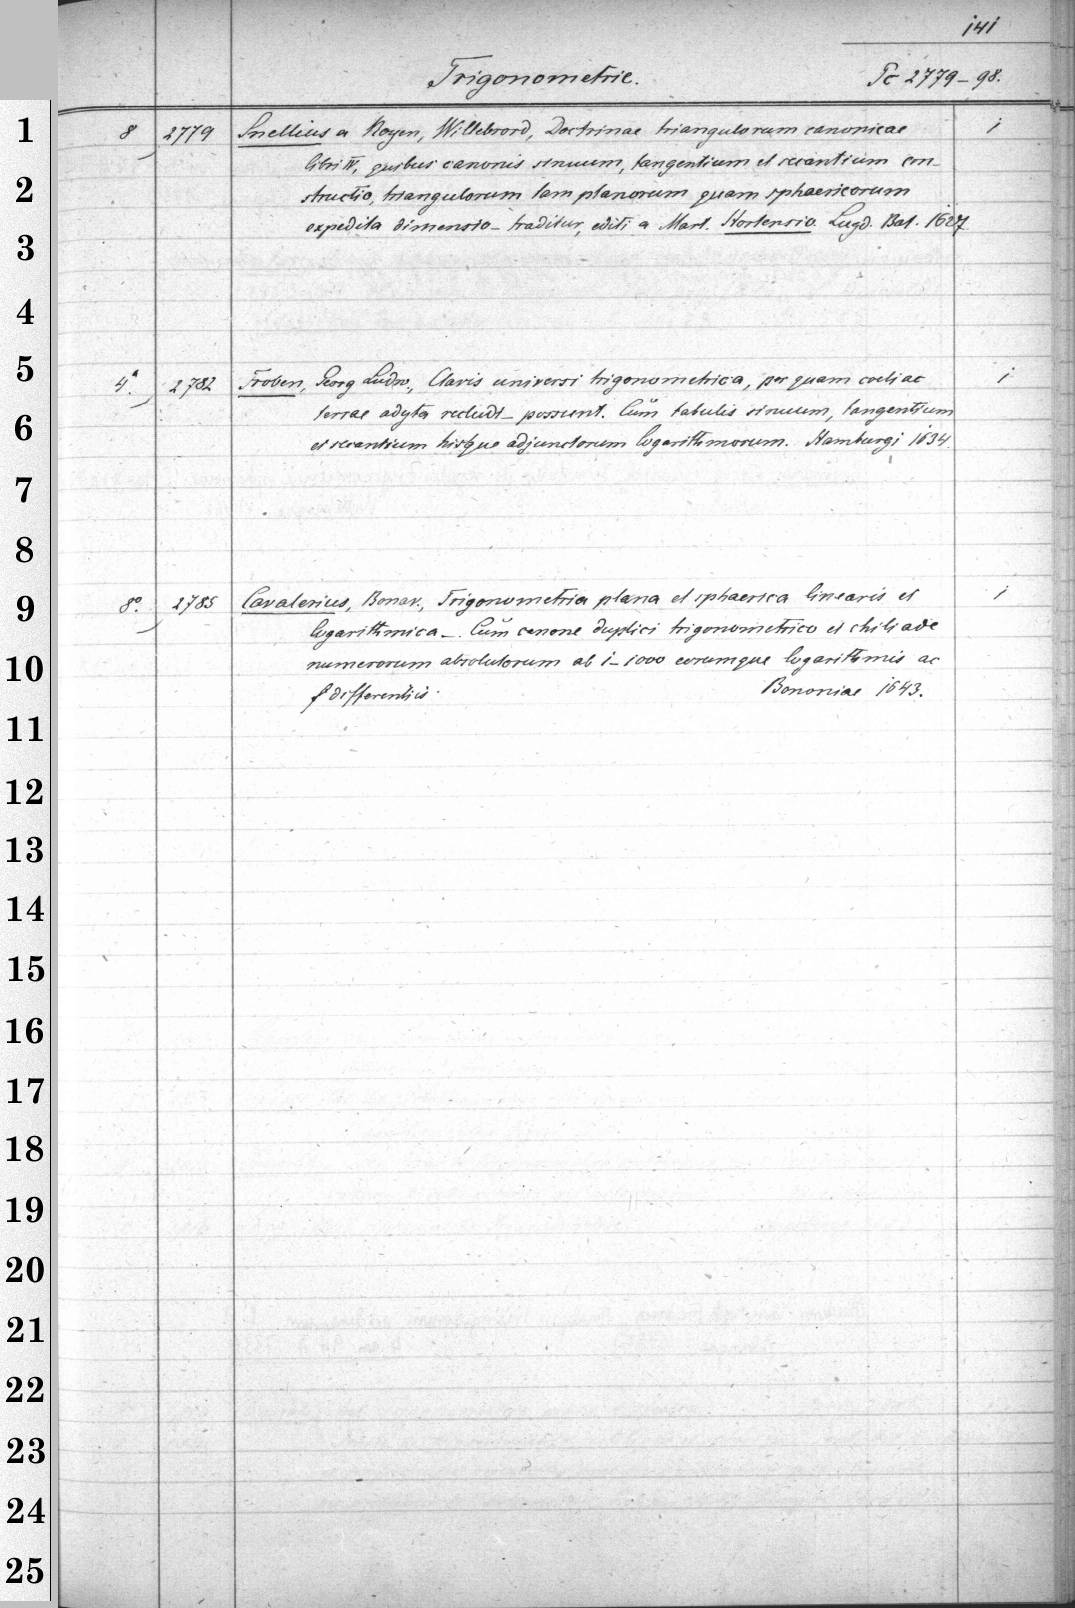 141
Trigonometrie. Pc 2779-98.
8 2779 Snellius a Royen, Willebrord, Doctrinae triangulorum canonicae 1
libri IV, quibus canonis sinuum, tangentium et secantium con-
structio, triangulorum tam planorum quam sphaericorum
expedita dimensio - traditur, editi a Mart. Hortensio. Lugd. Bat. 1627
4°. 2782 Froben, Georg Ludov., Clavis universi trigonometrica, per quam coeli ac 1
terrae adyta recludi - possunt. Cum tabulis sinuum, tangentium
et secantium hisque adjunctorum logarithmorum. Hamburgi 1634
8°. 2785 Cavalerius, Bonav., Trigonometria plana et sphaerica linearis et 1
logarithmica -. Cum canone duplici trigonometrico et chiliade
numerorum absolutorum ab 1-1000 eorumque logarithmis ac
differentiis. Bononiae 1643.
1
2
3
4
5
6
7
8
9
10
11
12
13
14
15
16
17
18
19
20
21
22
23
24
25